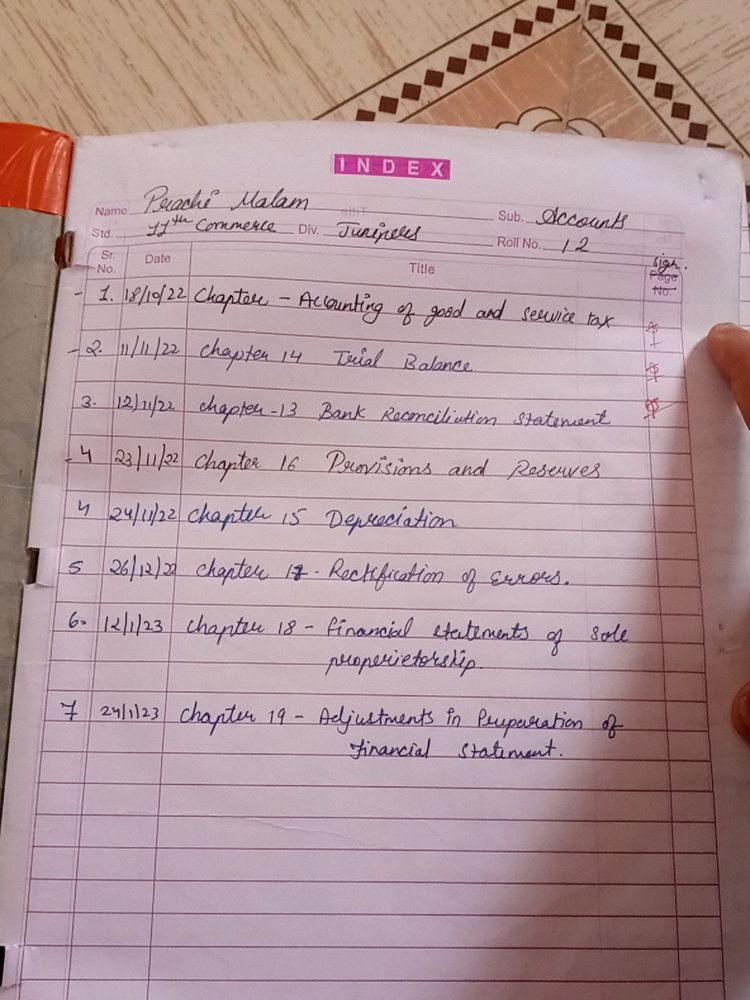 INDEX
Name Prachi Malam Sub. Accounts
Std. 11th Commerce Div. Junipers Roll No. 12
Sr. No. Date Title Sign. Page No.
- 1. 18/10/22 Chapter - Accounting of good and service tax
- 2. 11/11/22 chapter 14 Trial Balance
3. 12/11/22 chapter -13 Bank Reconciliation Statement
- 4 23/11/22 Chapter 16 Provisions and Reserves
4 24/11/22 Chapter 15 Depreciation
5 26/12/22 chapter 17 - Rectification of Errors.
6. 12/1/23 chapter 18 - financial statements of sole
properietorship.
7 24/1/23 chapter 19 - Adjustments in Preparation of
financial statement.